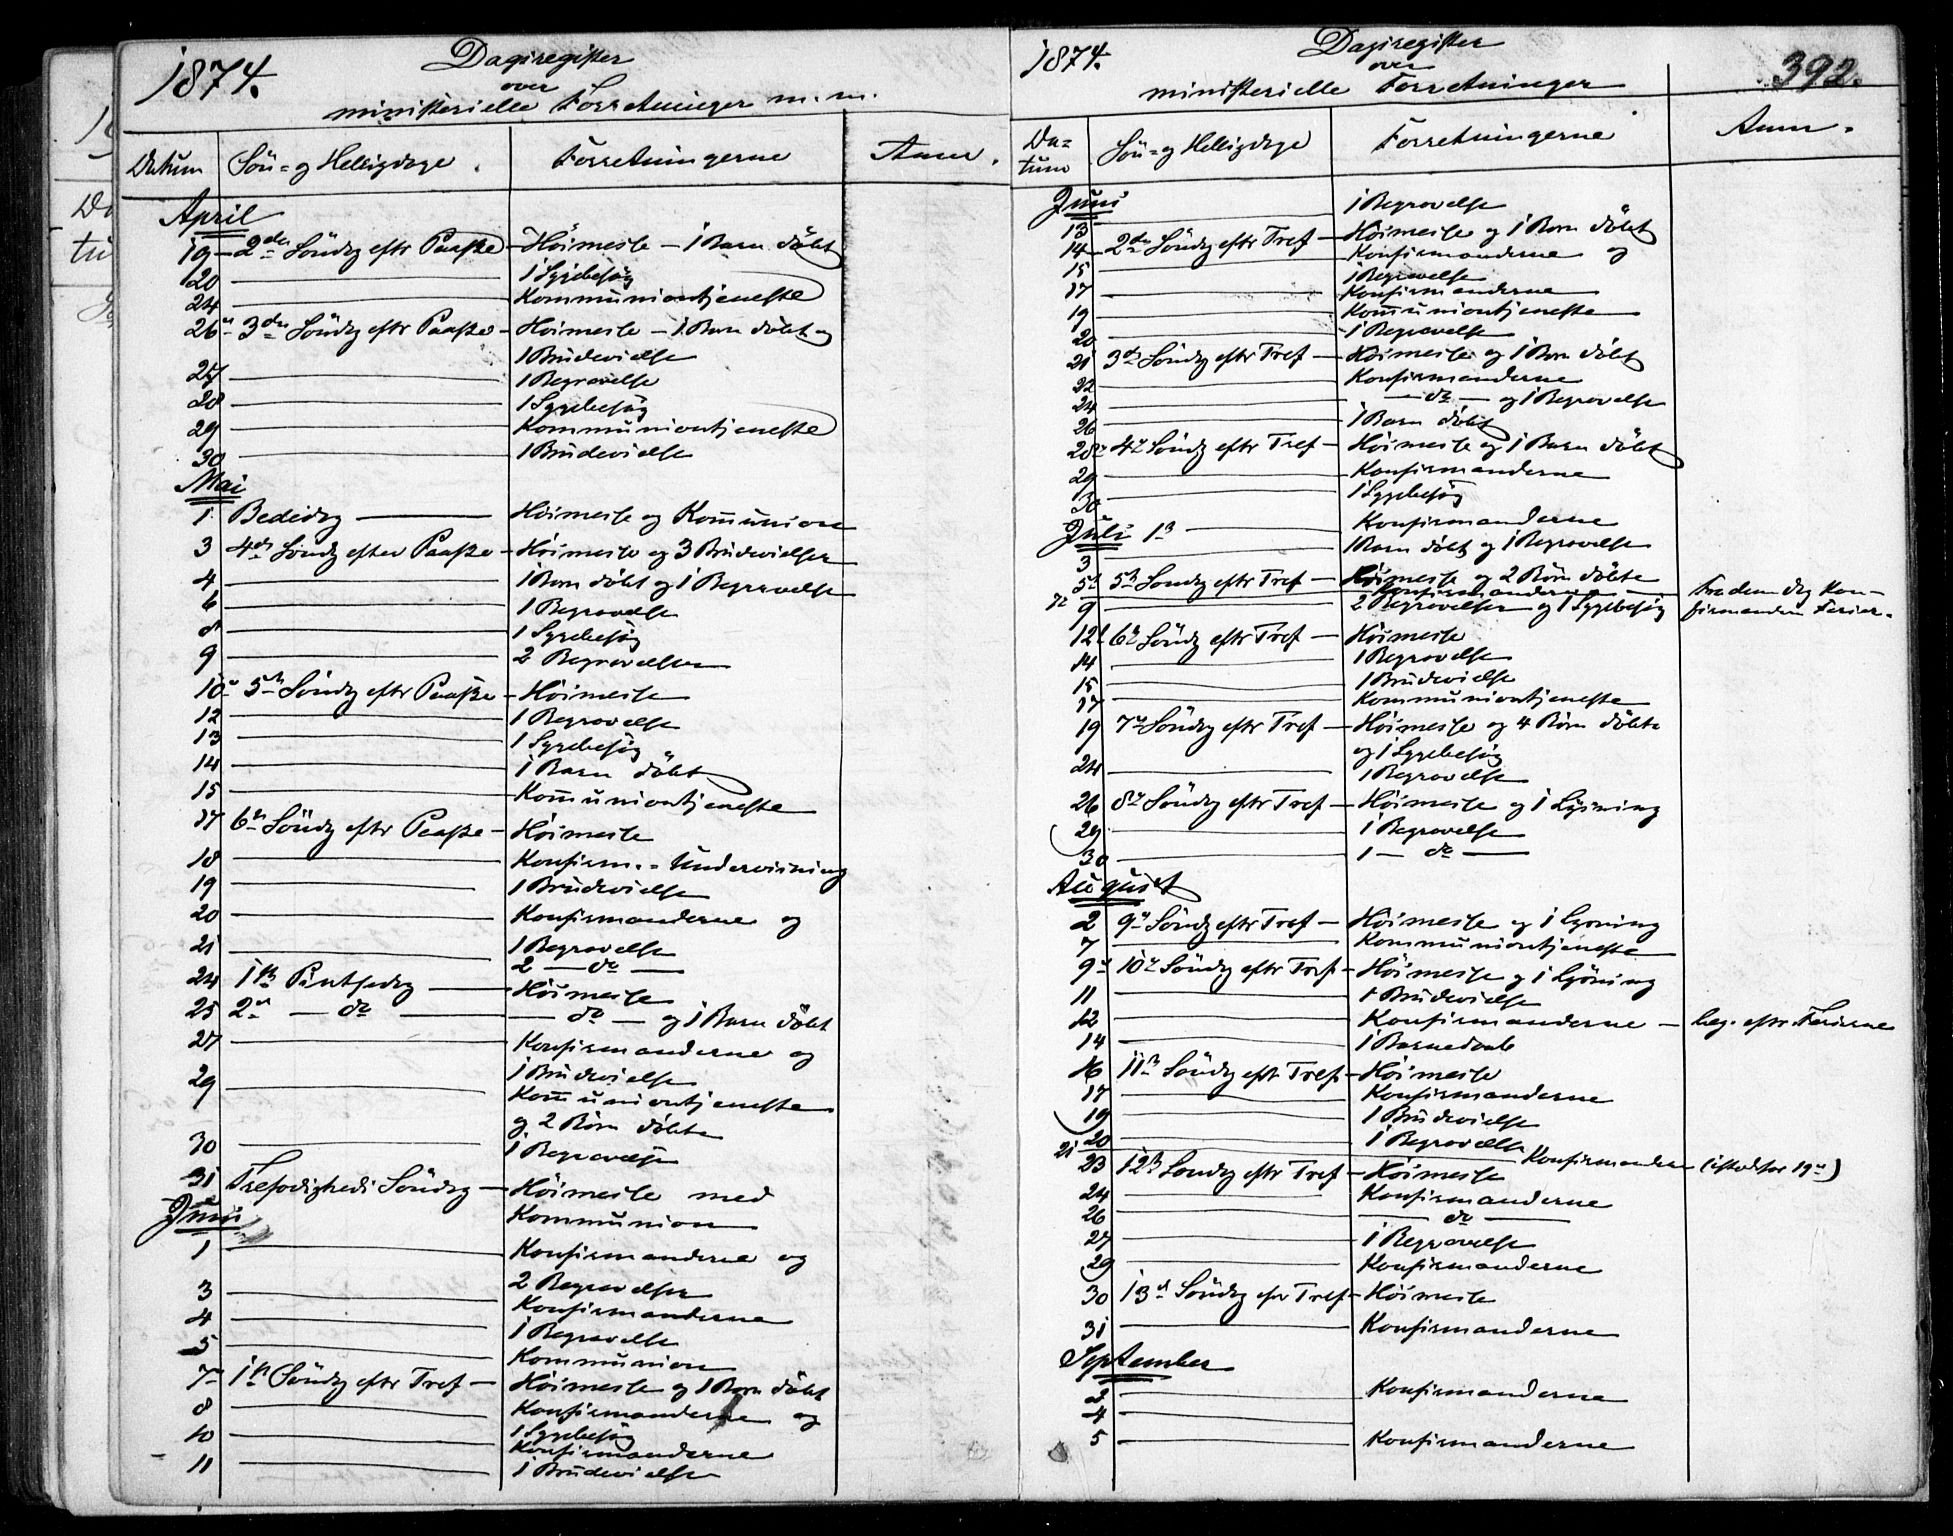 1874.
Dagsregister
over
ministerielle Forretninger m. m.
Datum Sön- og Helligdage. Forretningerne Anm.
April
19 2den Söndag eftr Paaske Höimesse — 1 Barn döbt
20 1 Sygebesög
24 Kommuniontjeneste
26 3die Söndag eftr Paaske Höimesse — 1 Barn döbt og
1 Brudevielse
27 1 Begravelse
28 1 Sygebesög
29 Kommuniontjeneste
30 1 Brudevielse
Mai
1 Bededag Höimesse og Kom̄union
3 4de Söndag efter Paaske Höimesse og 3 Brudevielser
4 1 Barn döbt og 1 Begravelse
6 1 Begravelse
8 1 Sygebesög
9 2 Begravelser
10 5te Söndag eftr Paaske Höimesse
12 1 Begravelse
13 1 Sygebesög
14 1 Barn döbt
15 Kom̄uniontjeneste
17 6te Söndag eftr Paaske Höimesse
18 Konfirm.- Undervisning
19 1 Brudevielse
20 Konfirmanderne og
1 Begravelse
21 2 — do —
24 1ste Pintsedag Höimesse
25 2den — do — — do — og 1 Barn döbt
27 Konfirmanderne og
1 Brudevielse
29 Kom̄uniontjeneste
og 2 Börn döbte
30 1 Begravelse
31 Trefoldigheds Söndag Höimesse med
Kommunion
Juni
1 Konfirmanderne og
2 Begravelser
3 Konfirmanderne
4 1 Begravelse
5 Kommunion
7 1ste Söndag eftr Tref Höimesse og 1 Barn döbt
8 Konfirmanderne og
1 Sygebesög
10 Konfirmanderne
11 1 Brudevielse
1874.
Dagsregister
over
ministerielle Forretninger
392.
Da-
tum Sön- og Helligdage Forretningerne Anm.
Juni
13 1 Begravelse
14 2den Söndag eftr Tref Höimesse og 1 Barn döbt
15 Konfirmanderne og
1 Begravelse
17 Konfirmanderne
19 Kom̄uniontjeneste
20 1 Begravelse
21 3die Söndag eftr Tref Höimesse og 1 Barn döbt
22 Konfirmanderne
24 — do — og 1 Begravelse
26 1 Barn döbt
28 4de Söndag eftr Tref Höimesse og 1 Barn döbt
29 Konfirmanderne
30 1 Sygebesög
Juli 1ste Konfirmanderne
3 1 Barn döbt og 1 Begravelse
5te 5te Söndag eftr Tref Höimesse og 2 Börn döbte
7 Konfirmanderne — fra denne dag Kon-
9 2 Begravelser og 1 Sygebesög firmandern Ferier.
12 6te Söndag eftr Tref Höimesse
14 1 Begravelse
15 1 Brudevielse
17 Kommuniontjeneste
19 7de Söndag eftr Tref Höimesse og 4 Börn döbte
og 1 Sygebesög
24 1 Begravelse
26 8de Söndag eftr Tref Höimesse og 1 Lysning
29 1 Begravelse
30 1 — do —
August
2 9de Söndag eftr Tref Höimesse og 1 Lysning
7 Kommuniontjeneste
9 10de Söndag eftr Tref Höimesse og 1 Lysning
11 1 Brudevielse
12 Konfirmanderne — beg. eftr. Ferierne
14 1 Barnedaab
16 11te Söndag eftr Tref Höimesse
17 Konfirmanderne
19 1 Brudevielse
20 1 Begravelse
21 Konfirmanderne (istedetfor 19de)
23 12te Söndag eftr Tref Höimesse
24 Konfirmanderne
26 — do —
27 1 Begravelse
29 Konfirmanderne
30 13de Söndag eftr Tref Höimesse
31 Konfirmanderne
September
2 Konfirmanderne
4
5 Konfirmanderne